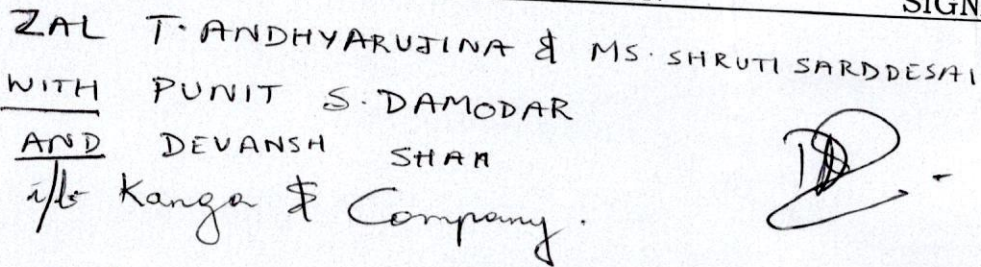 SIGN
ZAL T. ANDHYARUJINA & MS. SHRUTI SARDDESAI
WITH PUNIT S. DAMODAR
AND DEVANSH SHAH
i/b Kanga & Company.